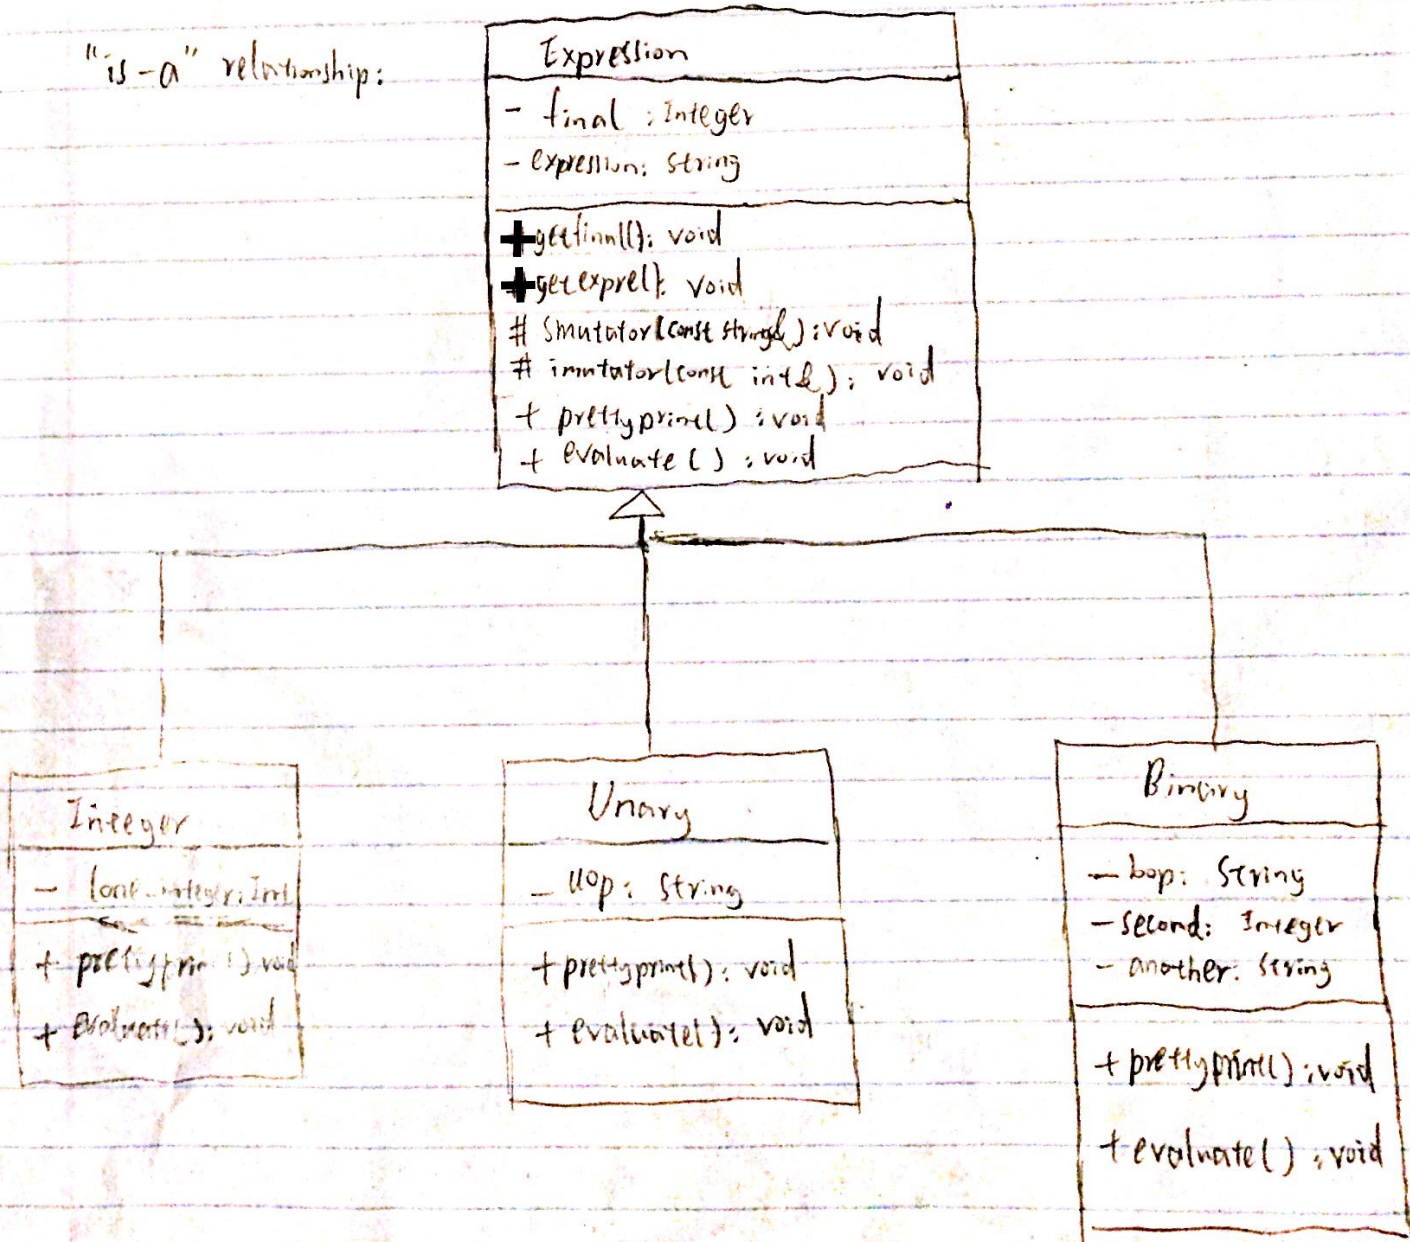 "is-a" relationship:
Expression
- final : Integer
- expression: String
+ getfinal(): void
+ getexpre(): void
# Smutator(const string&) : void
# imutator(const int&) : void
+ prettyprint() : void
+ evaluate() : void
Integer
- integer: Int
+ prettyprint() void
+ evaluate(): void
Unary
- uop: String
+ prettyprint(): void
+ evaluate(): void
Binary
- bop: String
- second: Integer
- another: String
+ prettyprint() : void
+ evaluate() : void